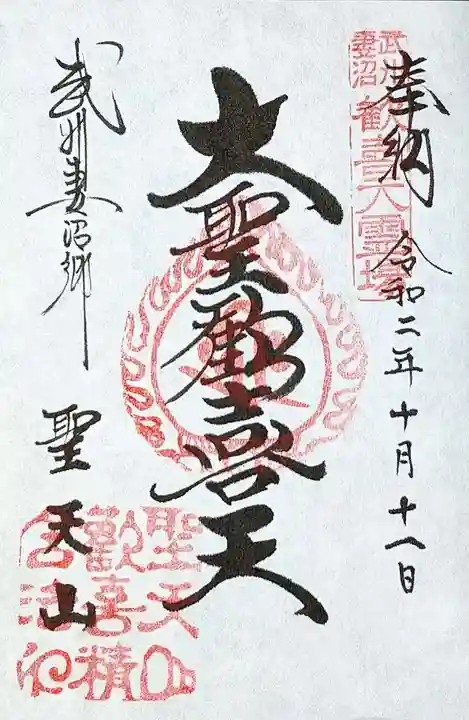 奉納
令和二年十月十八日
武州妻沼
歓喜天霊場
大聖歓喜天
武州妻沼郷
聖天山
聖天山
歓喜精
舎法印